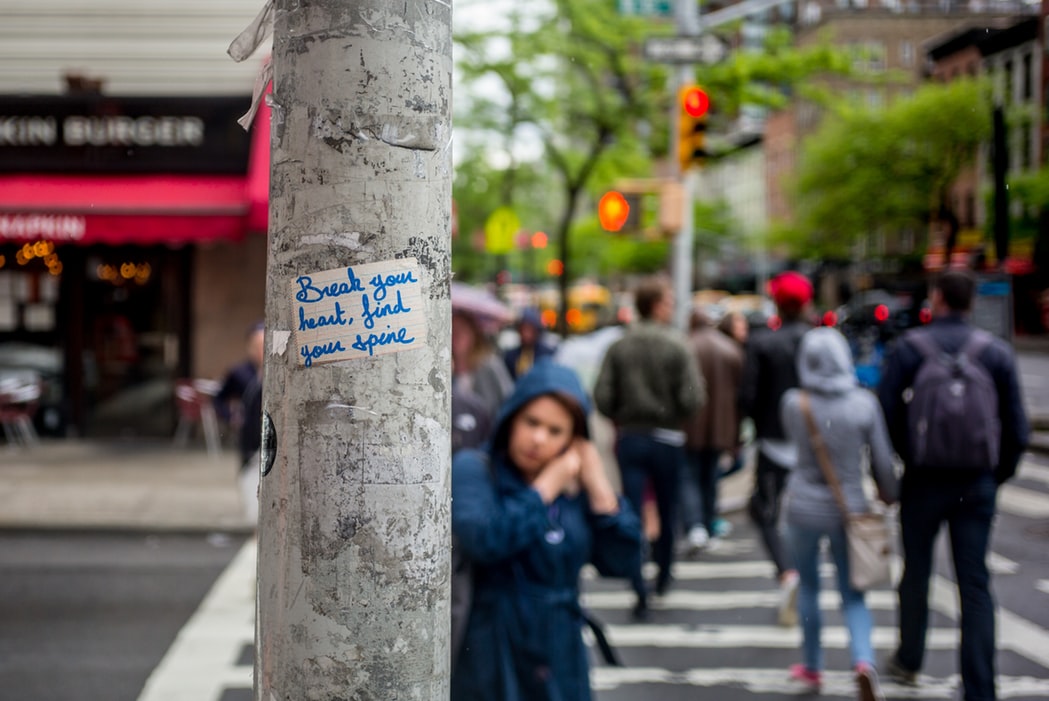 KIN BURGER
NAPKIN
Break your
heart, find
your spine